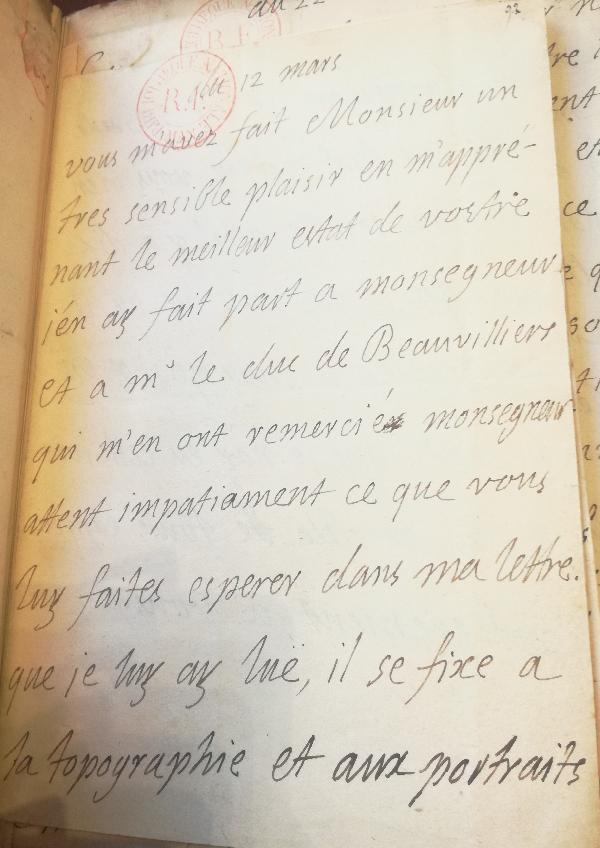 du 22
93
C.
R.F.
R.F.
du 12 mars
vous m'avez fait Monsieur un
tres sensible plaisir en m'appré-
nant le meilleur estat de vostre
j'én ay fait part a monsegneur
et a mr le duc de Beauvilliers
qui m'en ont remercié monsegneur
attent impatiament ce que vous
luy faites esperer dans ma lettre.
que je luy ay luë, il se fixe a
la topographie et aux portraits